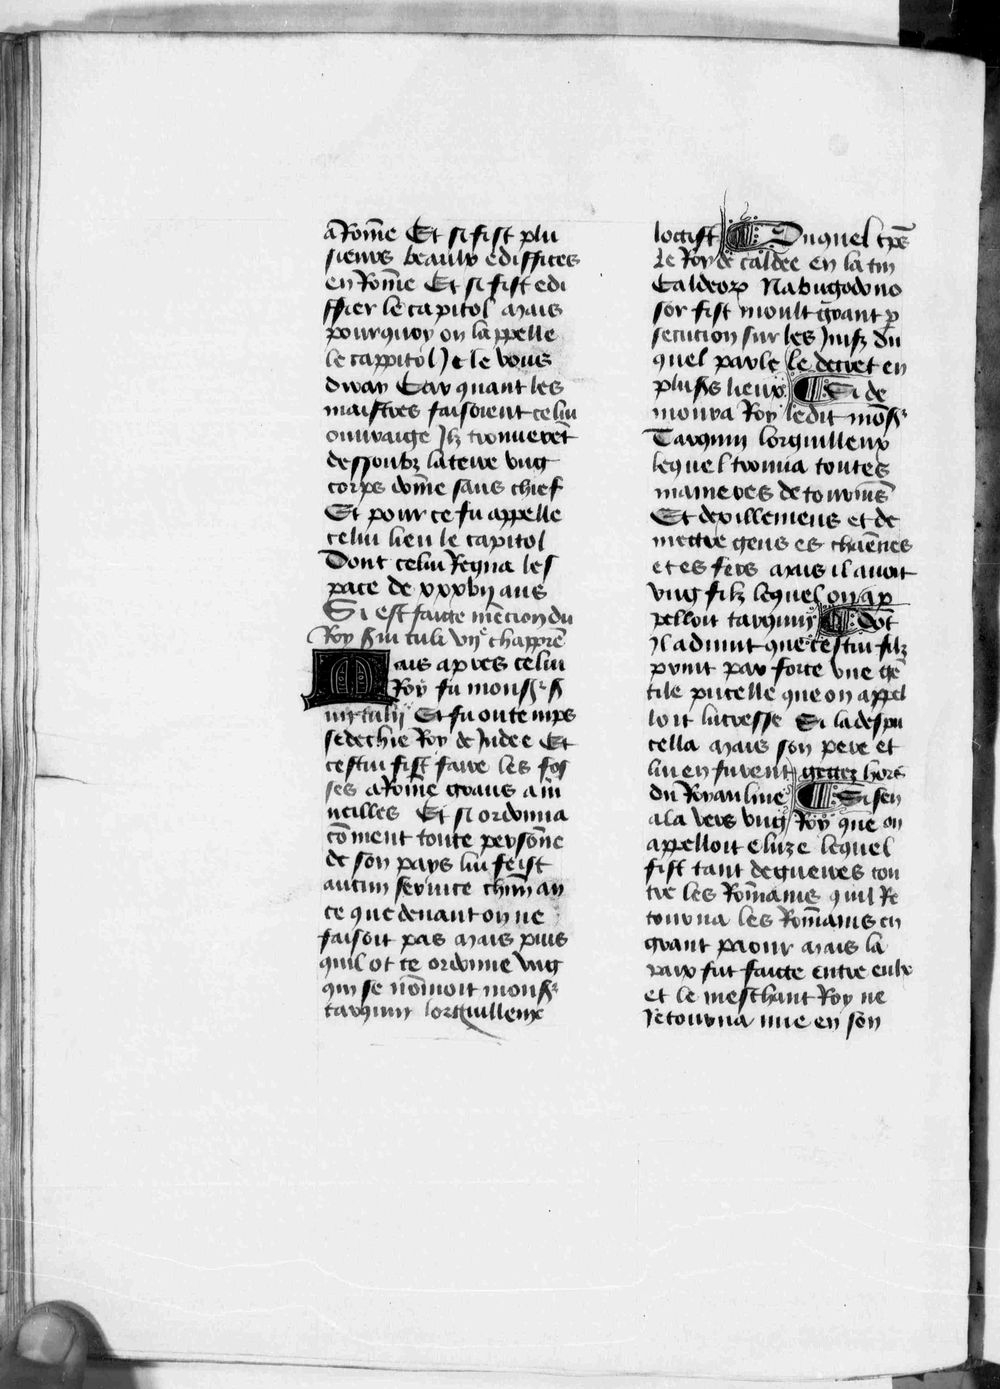 a Rom̄e Et si fist plu
sieurs beaulx ediffices
en Rom̄e Et si fist edi
ffier le capitol mais
pourquoy on lappelle
le cappitol Je le vous
diray Car quant les
maistres faisoient celui
ouuraige Ilz trouuerēt
dessoubz la terre vng
corps dom̄e sans chief
Et pour ce fu appelle
celui lieu le capitol
Dont celui Regna les
pace de xxxvij ans
Si est faicte mēcion du
Roy s̄ui tuli vijᵉ chappr̄e
Mais apres celui
Roy fu mons̄ʳ s̄
uirtulij Et fu ou temps
sedechie Roy de Judee Et
cestui fist faire les fos
ses a Rom̄e grans a m̄
ueilles Et si ordonna
cōment toute personn̄e
de son pays lui feist
aucun seruice chm̄ an
ce que deuant on ne
faisoit pas mais puis
quil ot ce ordonne vng
qui se nōmoit mons̄ʳ
tarquin lorguilleux
loccist Duquel tp̄s
le Roy de caldee en latin
Caldeorꝝ Nabugodono
sor fist moult grant ꝑ
secucion sur les Juifz du
quel parle le decret en
plus̄s lieux Si de
moura Roy ledit mons̄ʳ
Tarquin lorguilleux
lequel trouua toutes
manieres de tourmēs
Et dexillemens et de
mettre gens es chaēnes
et es fers mais il auoit
vng filz lequel on ap
pelloit tarquin dōt
Il aduint que cestui filz
print par force vne gē
tile pucelle que on appel
loit lucresse Si la despu
cella mais son pere et
lui en furent gettez hors
du Royaulme Si sen
ala vers vng Roy que on
appelloit eluze lequel
fist tant de guerres con
tre les Rom̄ains quil Re
tourna les Rom̄ains en
grant paour mais la
paix fut faicte entre eulx
et le meschant Roy ne
Retourna mie en son